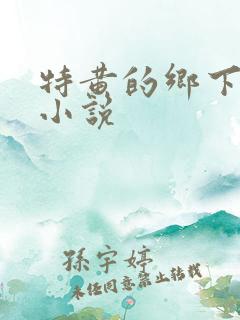 特黄的鄉下
小說
孫宇婷
未经同意禁止转载